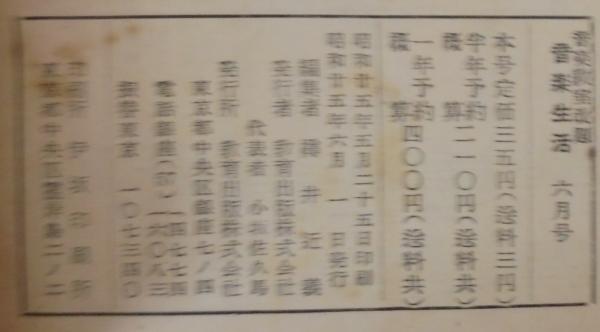 音楽生活 六月号
本号定価三五円(送料三円)
半年予約概算二一〇円(送料共)
一年予約概算四〇〇円(送料共)
昭和廿五年五月二十五日印刷
昭和廿五年六月 一日発行
編集者 井 近 義
発行者 教育出版株式会社
代表者 小 佐久馬
発行所 教育出版株式会社
東京都中央区銀座七ノ四
電話銀座(57) 一四七七四
一六〇八三
振替東京 一〇七三四〇
印刷所 印刷所
東京都中央区 二ノ二